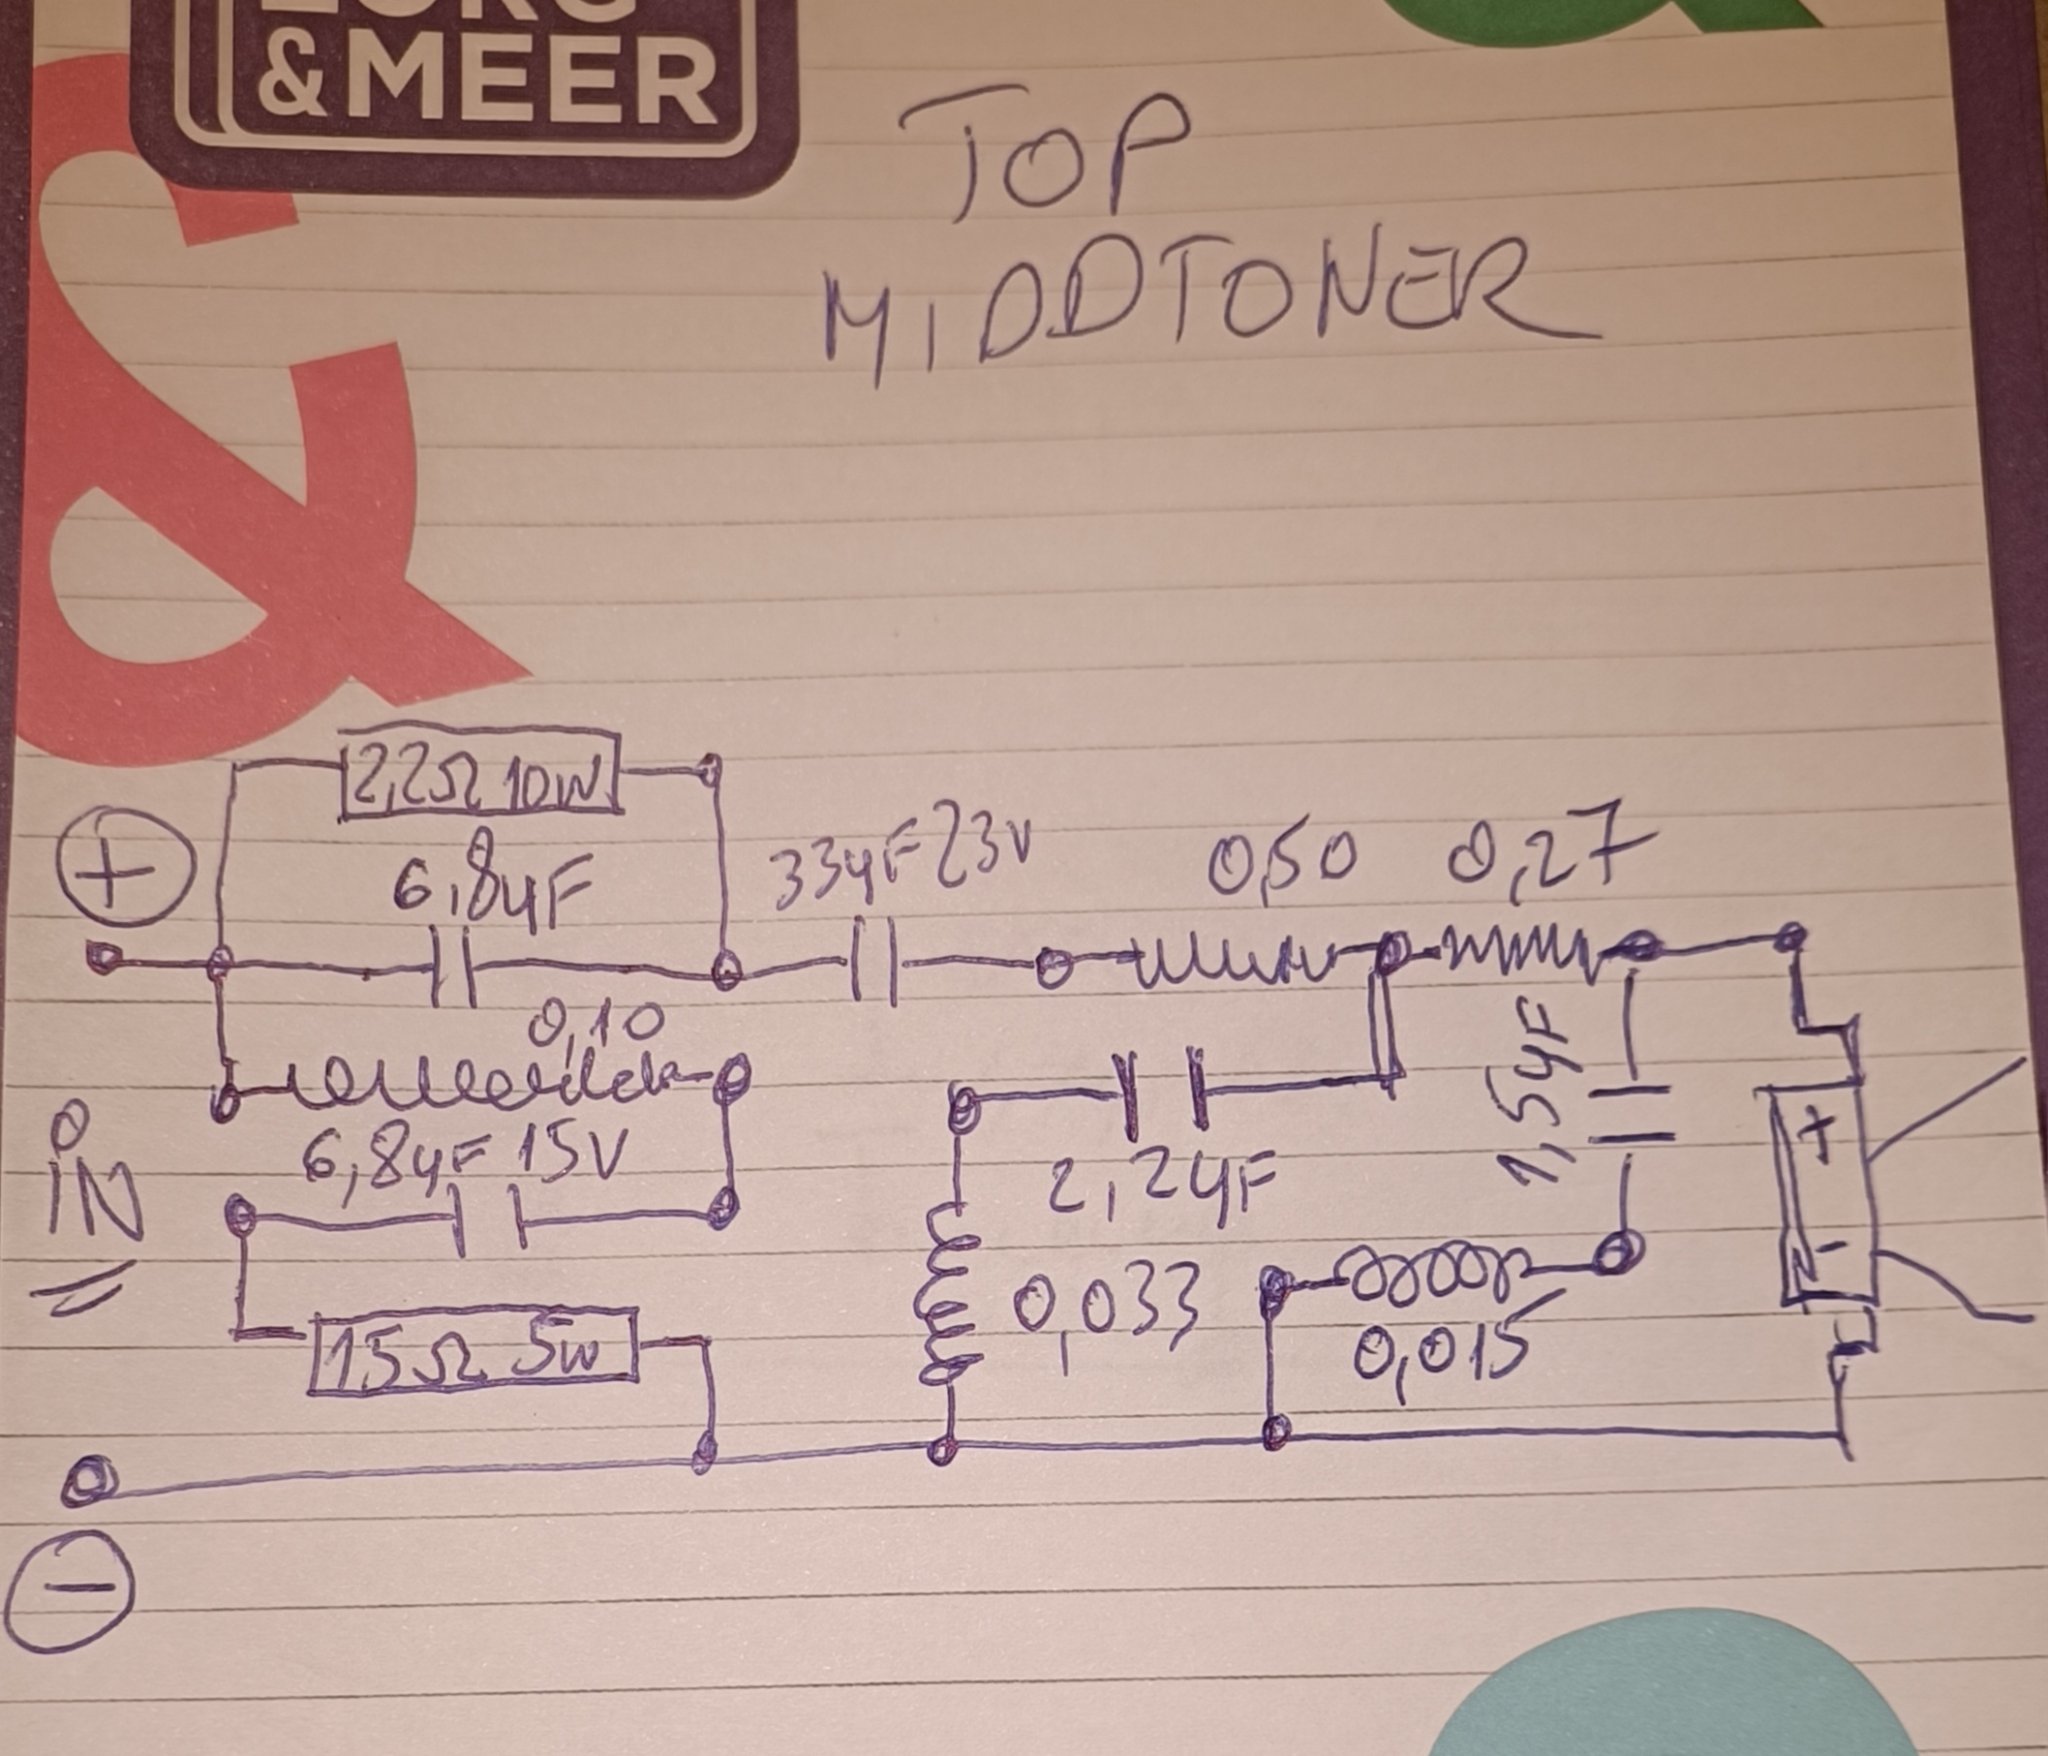 &MEER
TOP
MIDDTONER
2,2Ω 10W
+
6,8µF
33µF 23V
0,50
0,27
0,10
1,5µF
IN
6,8µF 15V
2,2µF
+
-
0,033
0,015
15Ω 5W
-